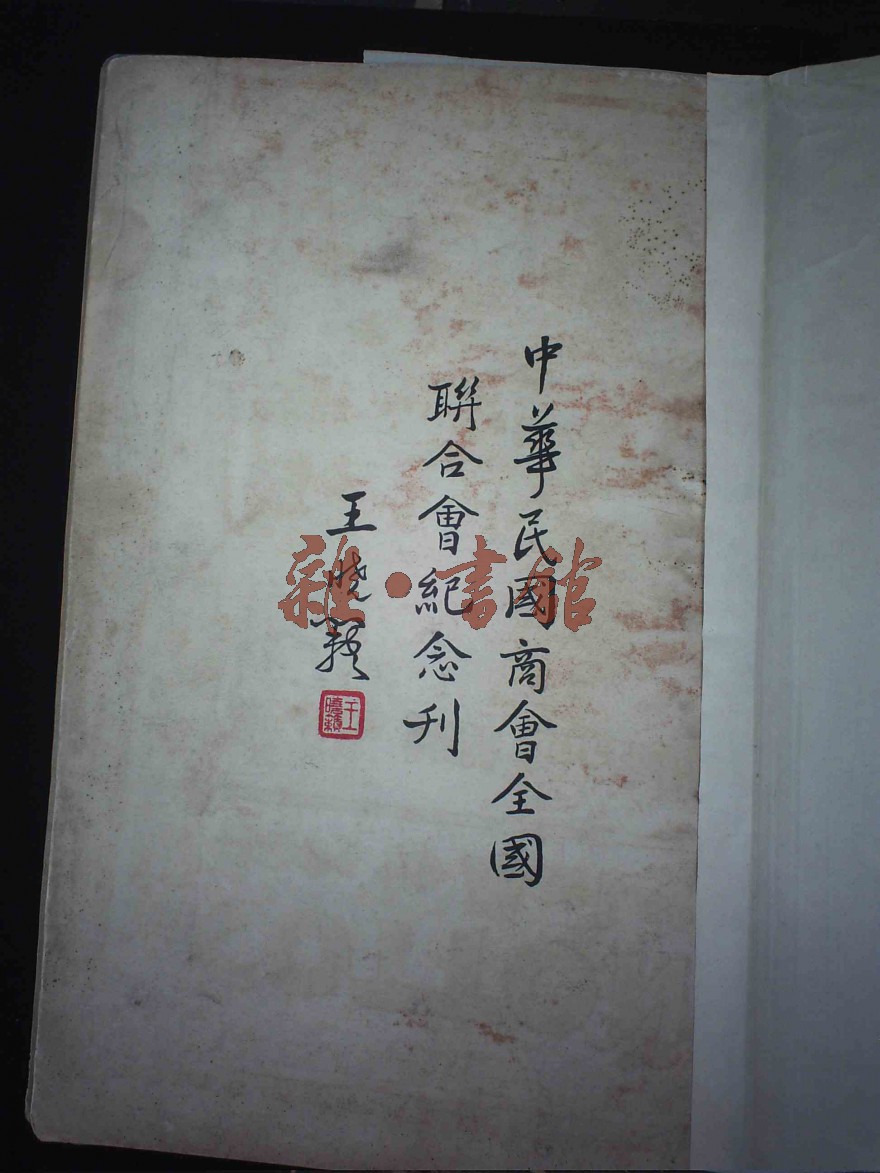 中華民國商會全國
聯合會紀念刊
王曉籟
王曉籟
雜·書館